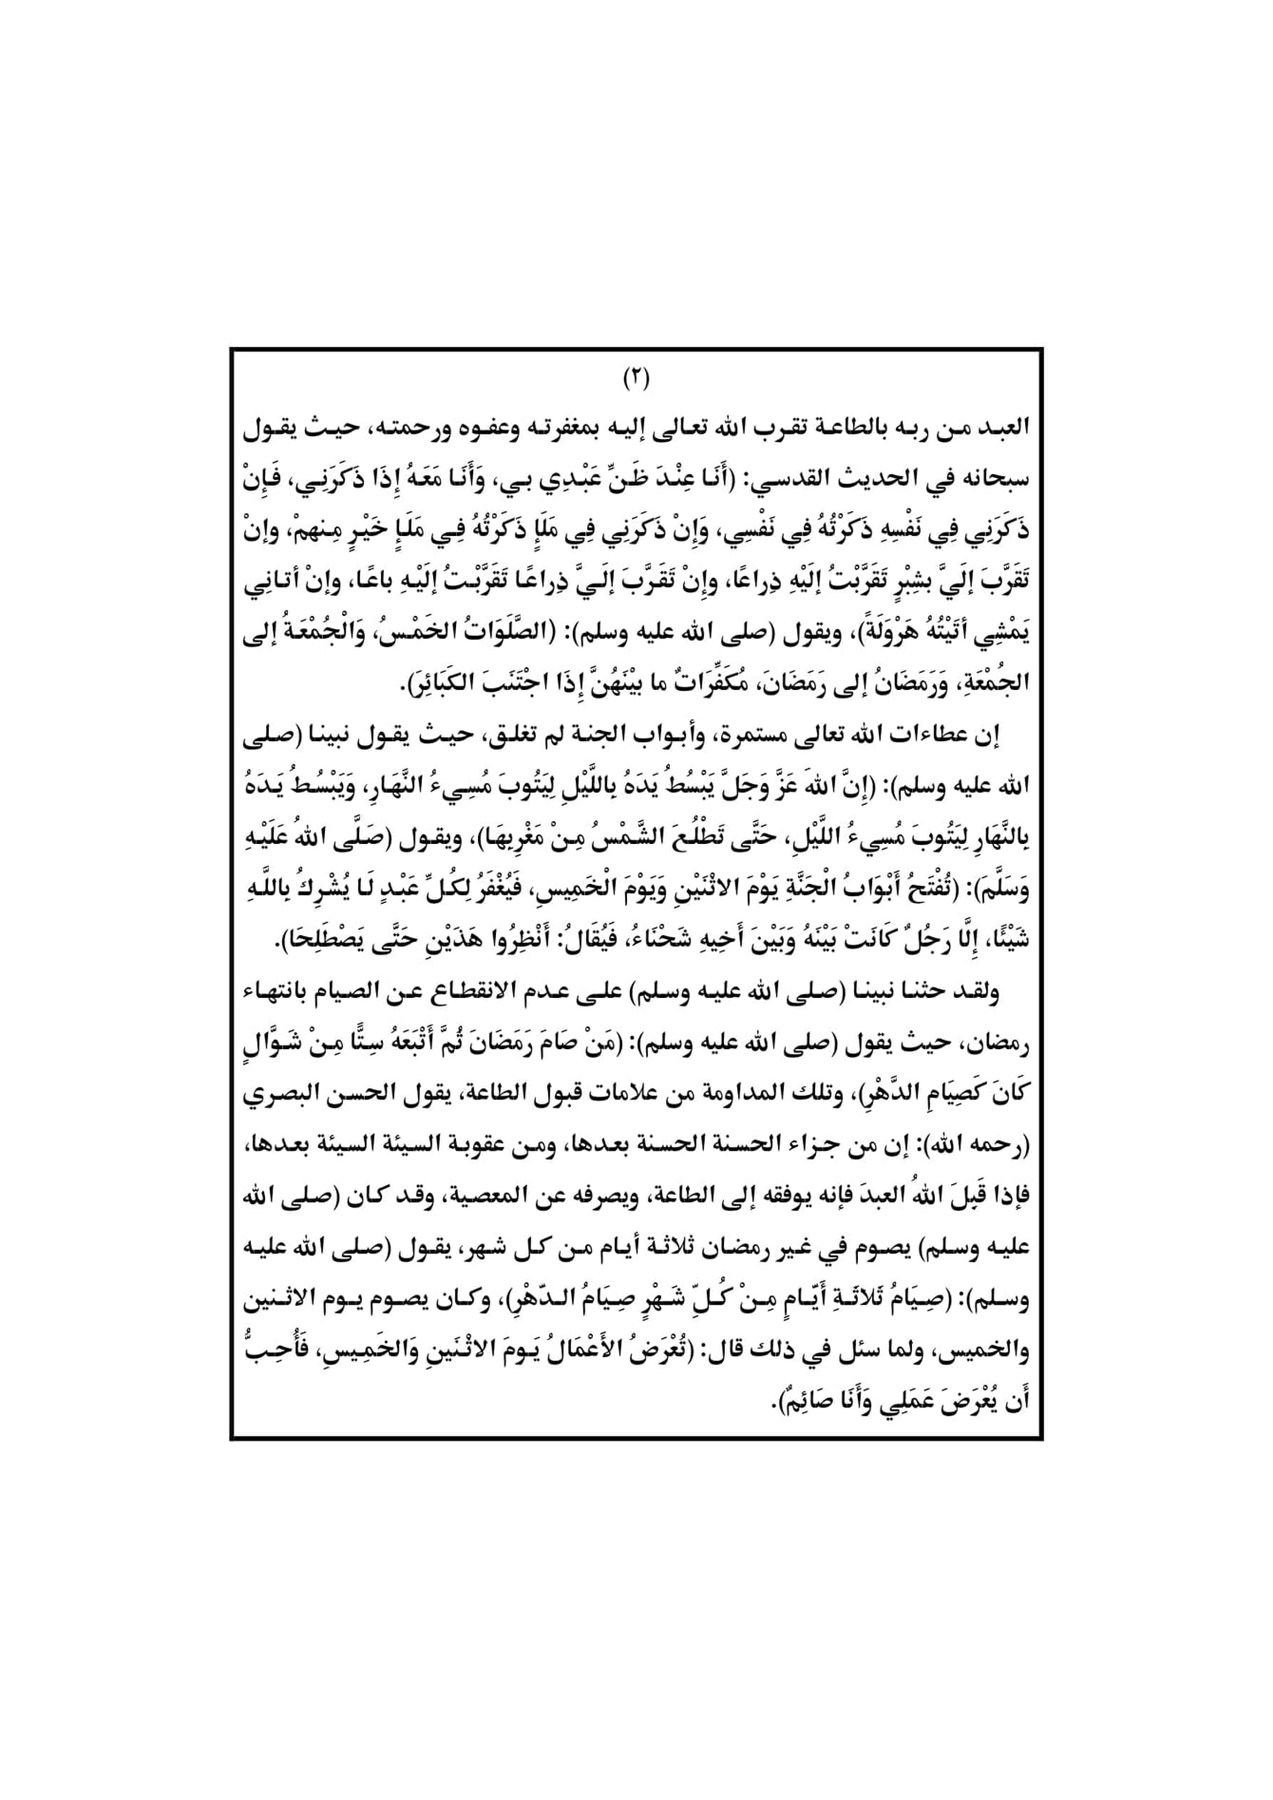 (٢)
العبد من ربه بالطاعة تقرب الله تعالى إليه بمغفرته وعفوه ورحمته، حيث يقول
سبحانه في الحديث القدسي: (أَنَا عِنْدَ ظَنِّ عَبْدِي بي، وَأَنَا مَعَهُ إِذَا ذَكَرَنِي، فَإِنْ
ذَكَرَنِي فِي نَفْسِهِ ذَكَرْتُهُ فِي نَفْسِي، وَإِنْ ذَكَرَنِي فِي مَلَإٍ ذَكَرْتُهُ فِي مَلَإٍ خَيْرٍ مِنهمْ، وإنْ
تَقَرَّبَ إلَيَّ بشِبْرٍ تَقَرَّبْتُ إلَيْهِ ذِراعًا، وإِنْ تَقَرَّبَ إلَيَّ ذِراعًا تَقَرَّبْتُ إلَيْهِ باعًا، وإنْ أتانِي
يَمْشِي أتَيْتُهُ هَرْوَلَةً)، ويقول (صلى الله عليه وسلم): (الصَّلَوَاتُ الخَمْسُ، وَالْجُمْعَةُ إلى
الجُمْعَةِ، وَرَمَضَانُ إلى رَمَضَانَ، مُكَفِّرَاتٌ ما بيْنَهُنَّ إِذَا اجْتَنَبَ الكَبَائِرَ).
إن عطاءات الله تعالى مستمرة، وأبواب الجنة لم تغلق، حيث يقول نبينا (صلى
الله عليه وسلم): (إِنَّ اللهَ عَزَّ وَجَلَّ يَبْسُطُ يَدَهُ بِاللَّيْلِ لِيَتُوبَ مُسِيءُ النَّهَارِ، وَيَبْسُطُ يَدَهُ
بِالنَّهَارِ لِيَتُوبَ مُسِيءُ اللَّيْلِ، حَتَّى تَطْلُعَ الشَّمْسُ مِنْ مَغْرِبِهَا)، ويقول (صَلَّى اللهُ عَلَيْهِ
وَسَلَّمَ): (تُفْتَحُ أَبْوَابُ الْجَنَّةِ يَوْمَ الاثْنَيْنِ وَيَوْمَ الْخَمِيسِ، فَيُغْفَرُ لِكُلِّ عَبْدٍ لَا يُشْرِكُ بِاللَّهِ
شَيْئًا، إِلَّا رَجُلٌ كَانَتْ بَيْنَهُ وَبَيْنَ أَخِيهِ شَحْنَاءُ، فَيُقَالُ: أَنْظِرُوا هَذَيْنِ حَتَّى يَصْطَلِحَا).
ولقد حثنا نبينا (صلى الله عليه وسلم) على عدم الانقطاع عن الصيام بانتهاء
رمضان، حيث يقول (صلى الله عليه وسلم): (مَنْ صَامَ رَمَضَانَ ثُمَّ أَتْبَعَهُ سِتًّا مِنْ شَوَّالٍ
كَانَ كَصِيَامِ الدَّهْرِ)، وتلك المداومة من علامات قبول الطاعة، يقول الحسن البصري
(رحمه الله): إن من جزاء الحسنة الحسنة بعدها، ومن عقوبة السيئة السيئة بعدها،
فإذا قَبِلَ اللهُ العبدَ فإنه يوفقه إلى الطاعة، ويصرفه عن المعصية، وقد كان (صلى الله
عليه وسلم) يصوم في غير رمضان ثلاثة أيام من كل شهر، يقول (صلى الله عليه
وسلم): (صِيَامُ ثَلاثَةِ أَيّامٍ مِنْ كُلِّ شَهْرٍ صِيَامُ الدّهْرِ)، وكان يصوم يوم الاثنين
والخميس، ولما سئل في ذلك قال: (تُعْرَضُ الأَعْمَالُ يَومَ الاثْنَينِ وَالخَمِيسِ، فَأُحِبُّ
أَن يُعْرَضَ عَمَلِي وَأَنَا صَائِمٌ).